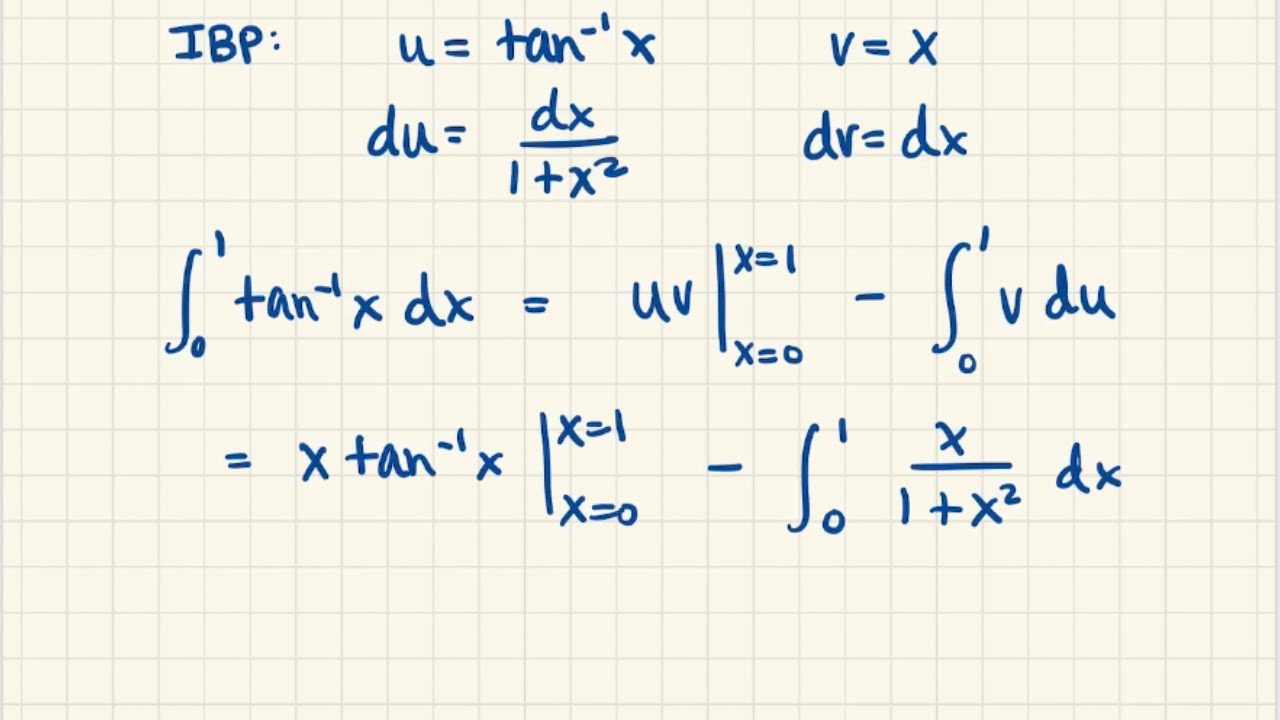 IBP: u = tan⁻¹ x v = x
du = dx/(1+x²) dv = dx
∫₀¹ tan⁻¹ x dx = uv |ₓ₌₀ˣ⁼¹ − ∫₀¹ v du
= x tan⁻¹ x |ₓ₌₀ˣ⁼¹ − ∫₀¹ x/(1+x²) dx